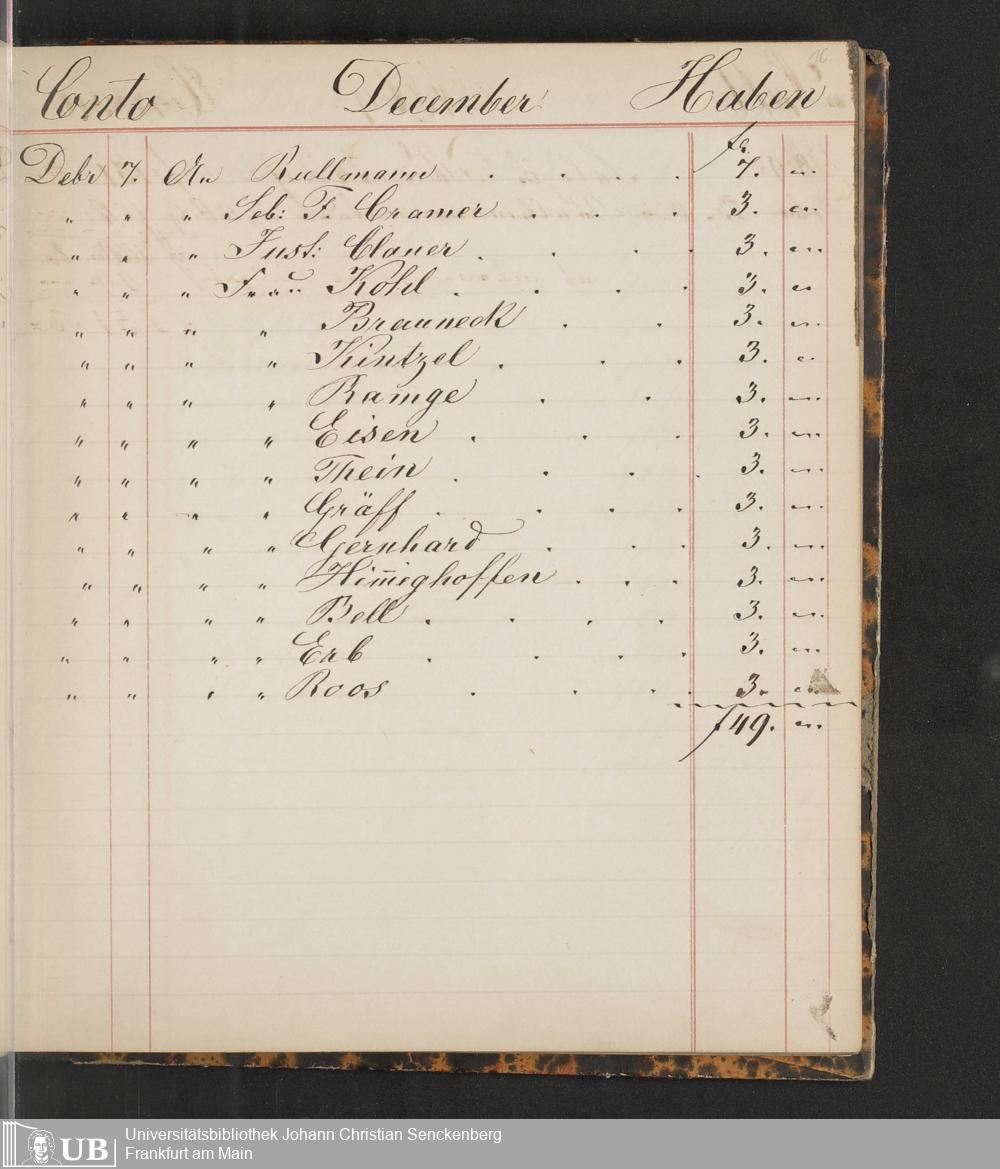 16
Conto December Haben
fr.
Debr 7. An Rullmann . . . . 7. „
„ „ „ Seb: F. Cramer . . . 3. „
„ „ „ Just: Clauer . . . 3. „
„ „ „ Frau Kohl . . . 3. „
„ „ „ „ Brauneck . . 3. „
„ „ „ „ Kintzel . . . 3. „
„ „ „ „ Ramge . . 3. „
„ „ „ „ Eisen . . . 3. „
„ „ „ „ Thein . . . . 3. „
„ „ „ „ Gräff . . . . 3. „
„ „ „ „ Gernhard . . . 3. „
„ „ „ „ Him̅eghoffen . . . 3. „
„ „ „ „ Bell . . . . 3. „
„ „ „ „ Erb . . . . 3. „
„ „ „ „ Roos . . . 3. „
f 49. „
UB
Universitätsbibliothek Johann Christian Senckenberg
Frankfurt am Main